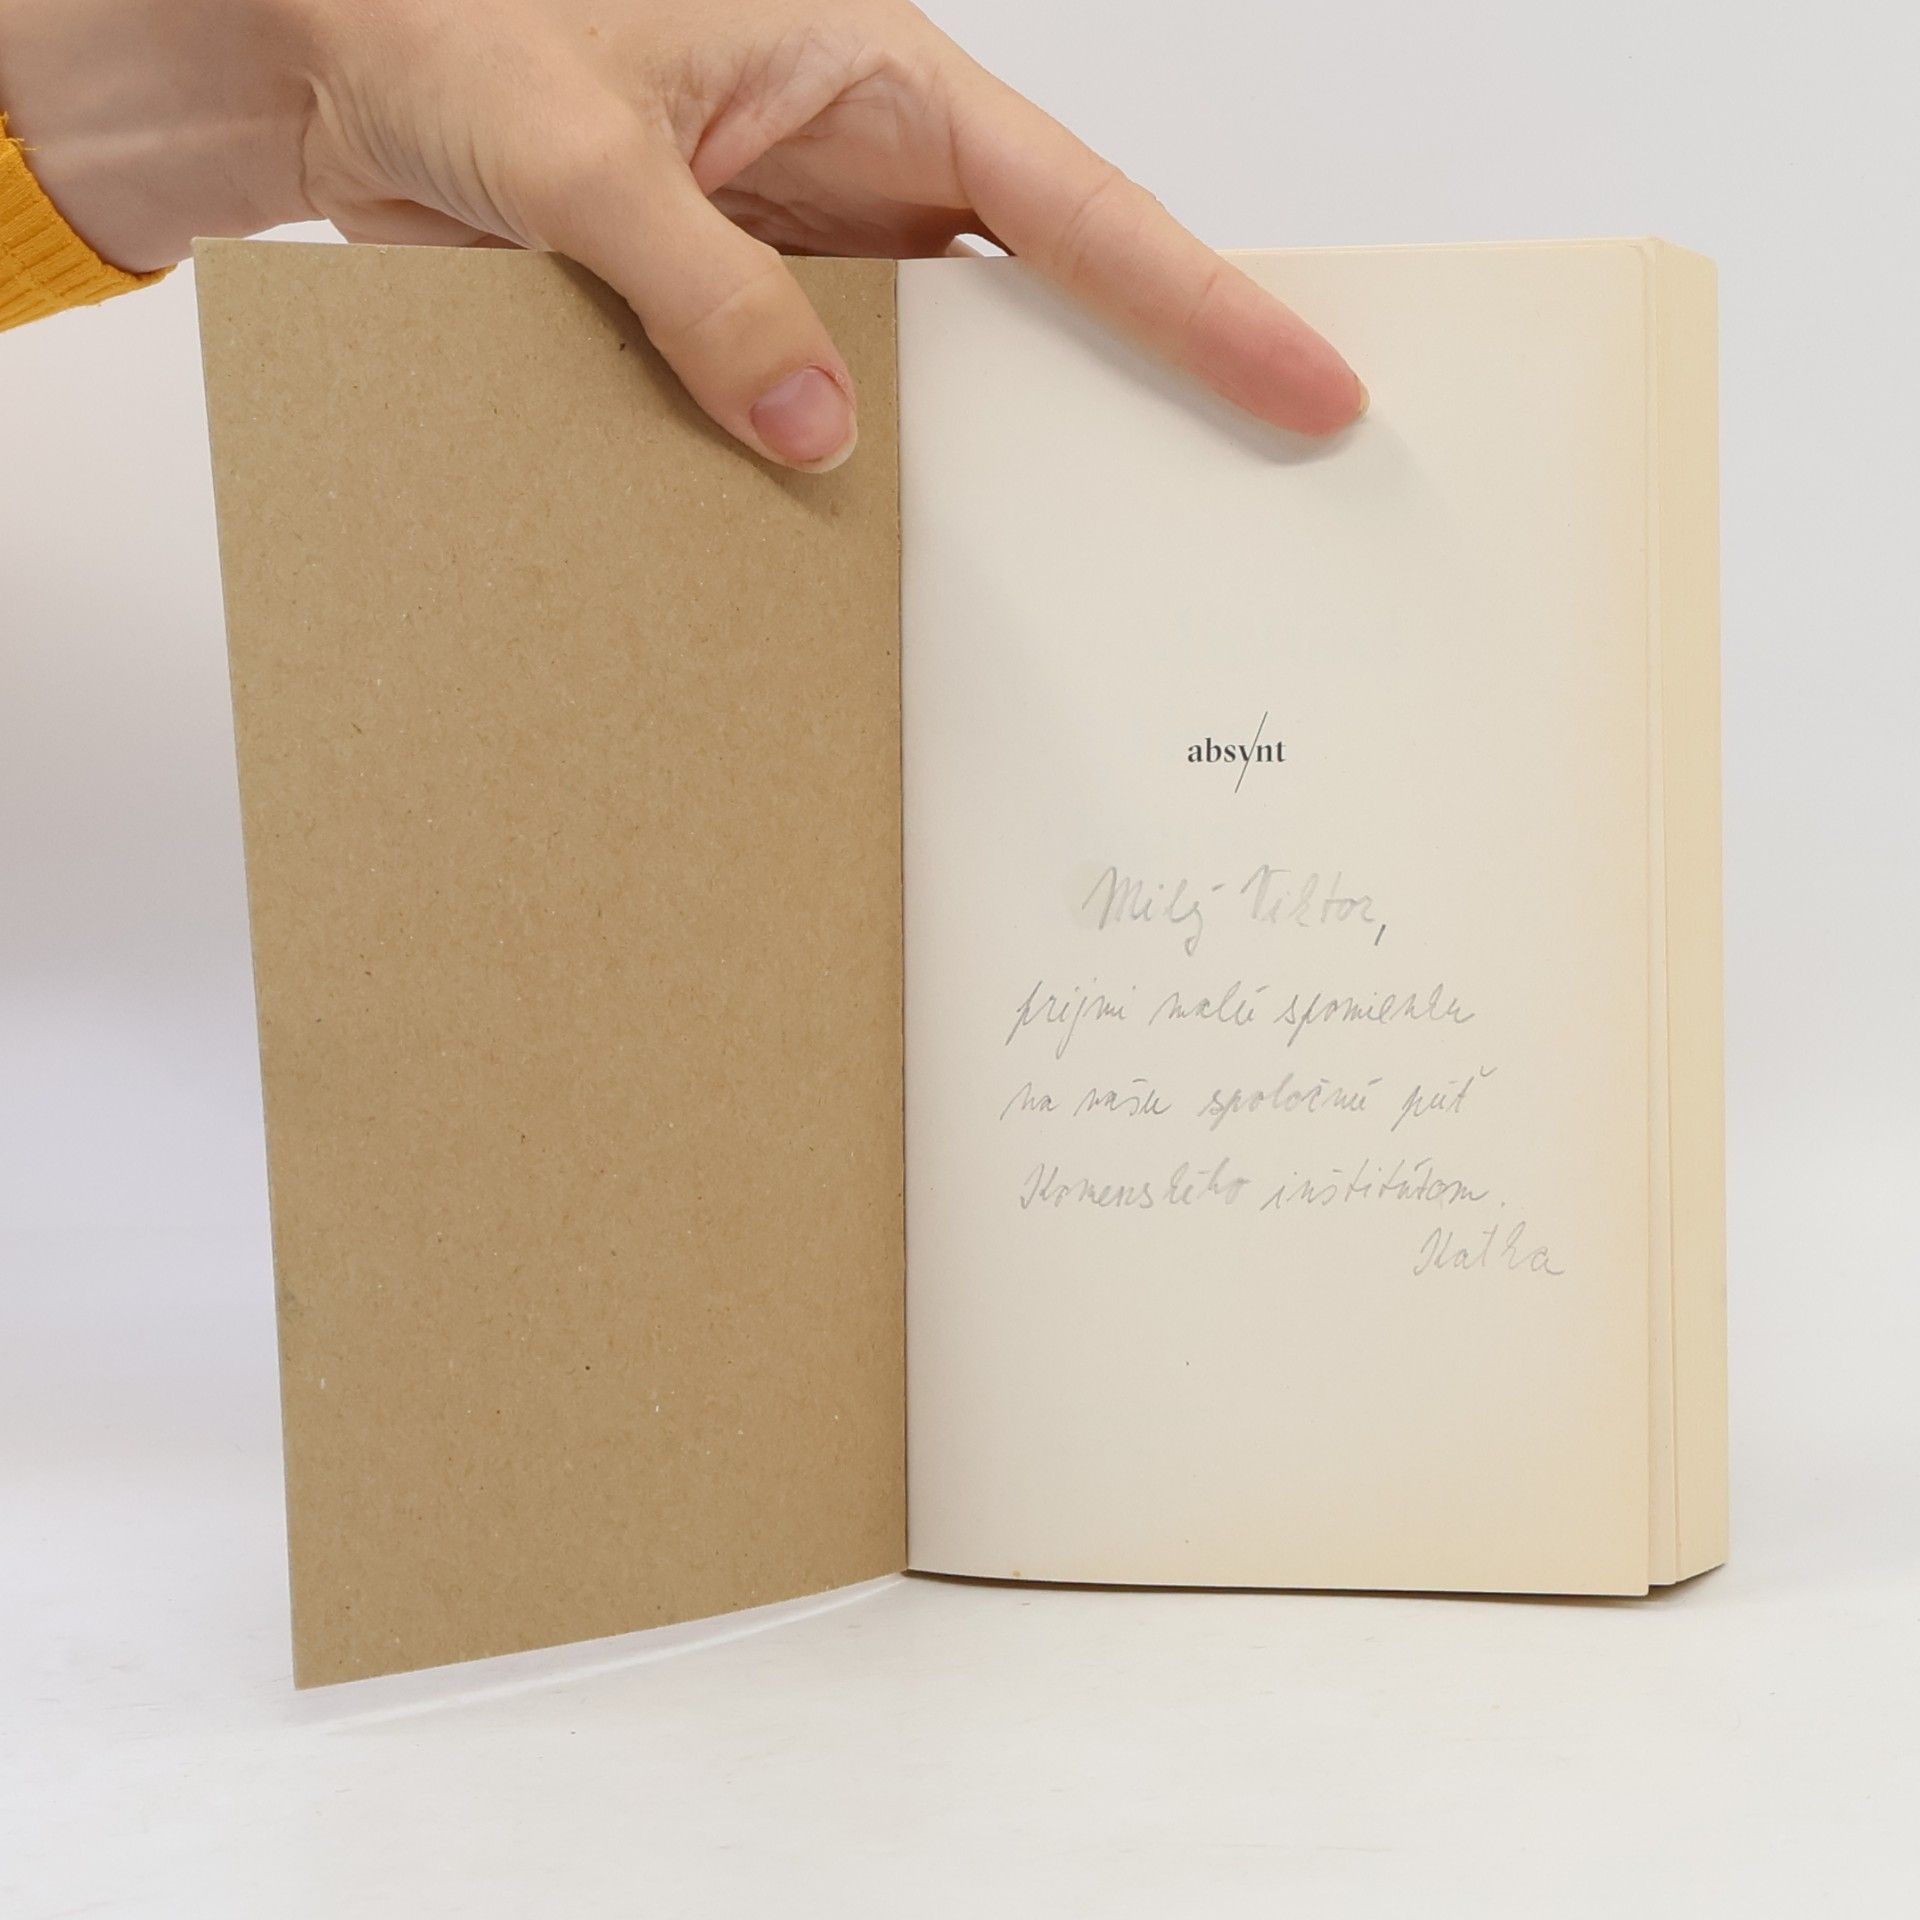 absynt
Milý Viktor,
prijmi malú spomienku
na našu spoločnú púť
Komenského inštitútom.
Katka